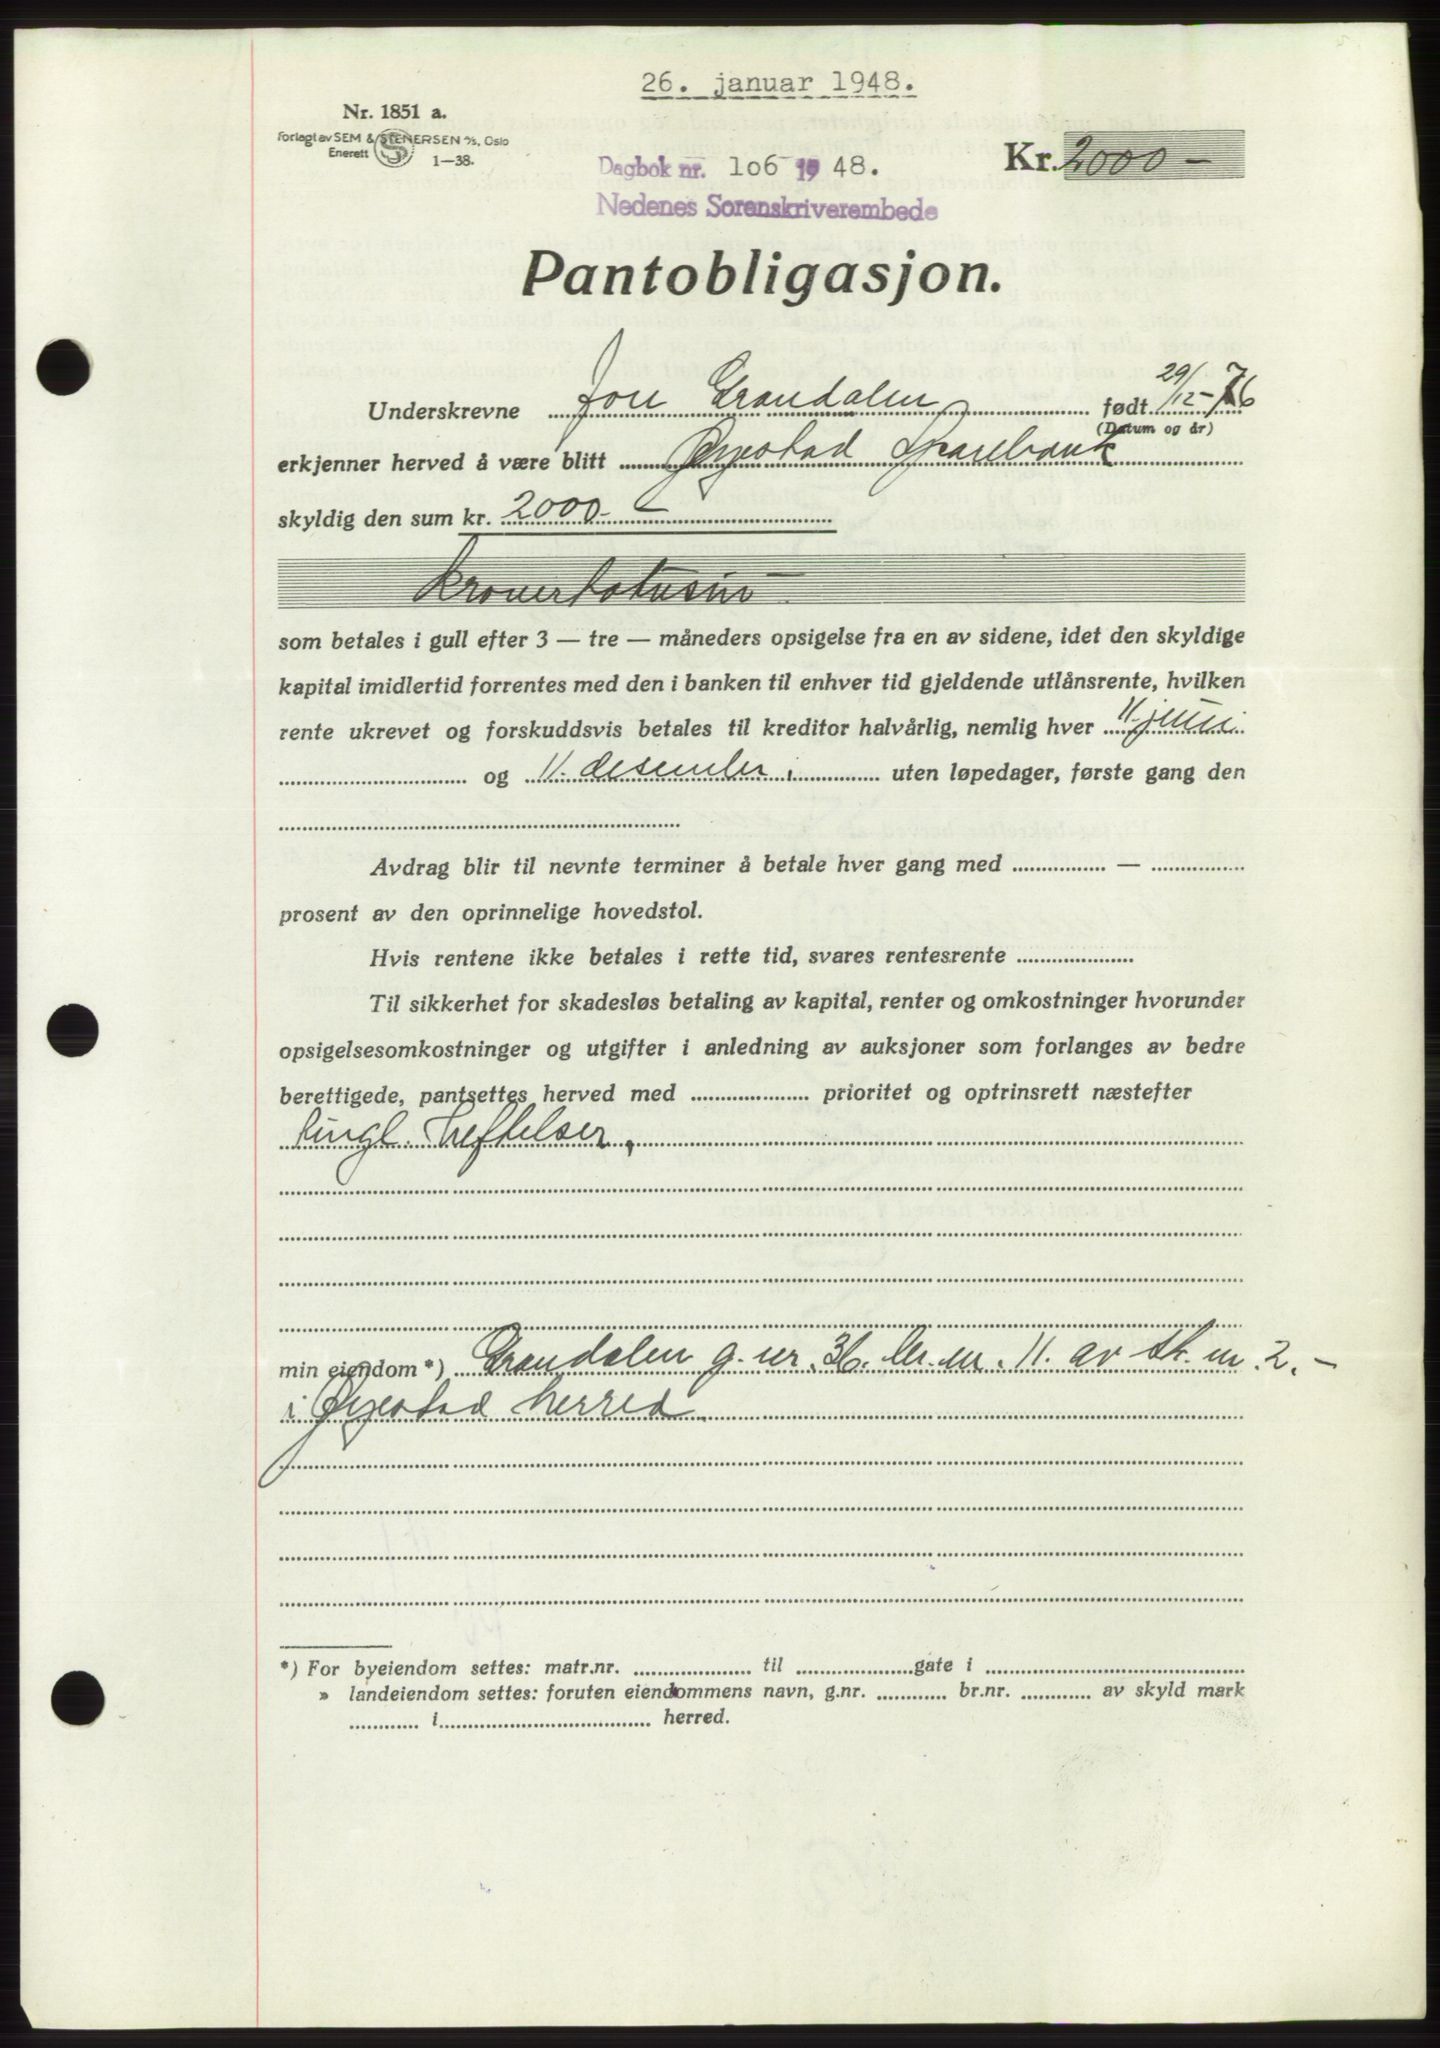 26. januar 1948.
Nr. 1851 a.
Forlagt av SEM & STENERSEN A/S, Oslo
Enerett 1—38.
Dagbok nr. 106 19 48.
Nedenes Sorenskriverembede
Kr. 2000 —
Pantobligasjon.
Underskrevne Jon Grandalen født 29/12-76
(Datum og år)
erkjenner herved å være blitt Øyestad Sparebank
skyldig den sum kr. 2000 —
Kronertotusin —
som betales i gull efter 3 — tre — måneders opsigelse fra en av sidene, idet den skyldige
kapital imidlertid forrentes med den i banken til enhver tid gjeldende utlånsrente, hvilken
rente ukrevet og forskuddsvis betales til kreditor halvårlig, nemlig hver 11. juni
og 11. desember, uten løpedager, første gang den
Avdrag blir til nevnte terminer å betale hver gang med —
prosent av den oprinnelige hovedstol.
Hvis rentene ikke betales i rette tid, svares rentesrente
Til sikkerhet for skadesløs betaling av kapital, renter og omkostninger hvorunder
opsigelsesomkostninger og utgifter i anledning av auksjoner som forlanges av bedre
berettigede, pantsettes herved med prioritet og optrinsrett næstefter
tingl. heftelser,
min eiendom*) Grandalen g. nr. 36. br. nr. 11. av sk. m. 2.—
i Øyestad herred.
*) For byeiendom settes: matr.nr. til gate i
» landeiendom settes: foruten eiendommens navn, g.nr. br.nr. av skyld mark
i herred.